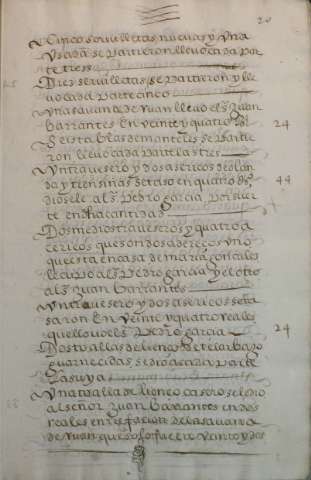 20
Cinco servilletas nuevas y una
usada se partieron llevo cada par
te tres
Diez servilletas se partieron y lle
vo cada parte cinco
Una savana de ruan llevo el s Juan
barrantes en veinte y quatro Rs
24
Seis tablas de manteles se partie
ron llevo cada parte las tres
Un travesero y dos asericos de olan
da y trensinas se taso en quatro ds
44
diosele al s Pedro garcia por suer
te en dha cantidad
Dos medios traveseros y quatro a
cericos que son dos aderecos uno
que esta en casa de maria goncales
le cupo al s Pedro garcia y el otro
al s Juan barrantes
Un travesero y dos asericos se ta
saron en veinte y quatro reales
que llevo el s Pedro garcia
24
Dos toallas de lienço de telar bajo
guarnecidas se dio a cada parte
la suya
Una toalla de lienço casero se dio
al señor Juan barrantes en dos
reales en satisfacion de la savana
de ruan que se fue en veinte y dos